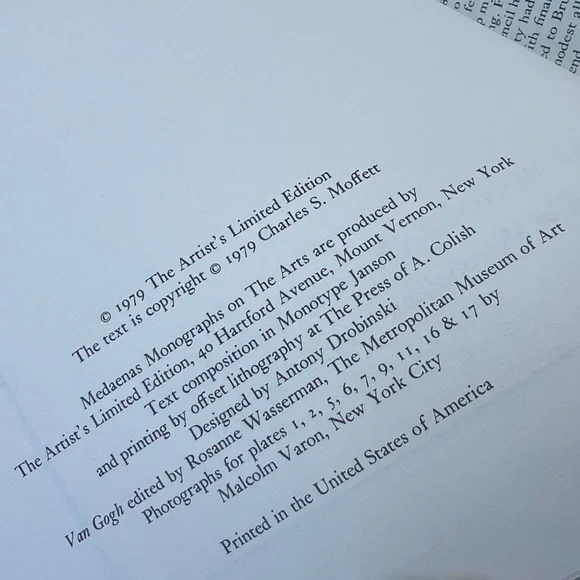 © 1979 The Artist's Limited Edition
The text is copyright © 1979 Charles S. Moffett
Medaenas Monographs on The Arts are produced by
The Artist's Limited Edition, 40 Hartford Avenue, Mount Vernon, New York
Text composition in Monotype Janson
and printing by offset lithography at The Press of A. Colish
Designed by Antony Drobinski
Van Gogh edited by Rosanne Wasserman, The Metropolitan Museum of Art
Photographs for plates 1, 2, 5, 6, 7, 9, 11, 16 & 17 by
Malcolm Varon, New York City
Printed in the United States of America